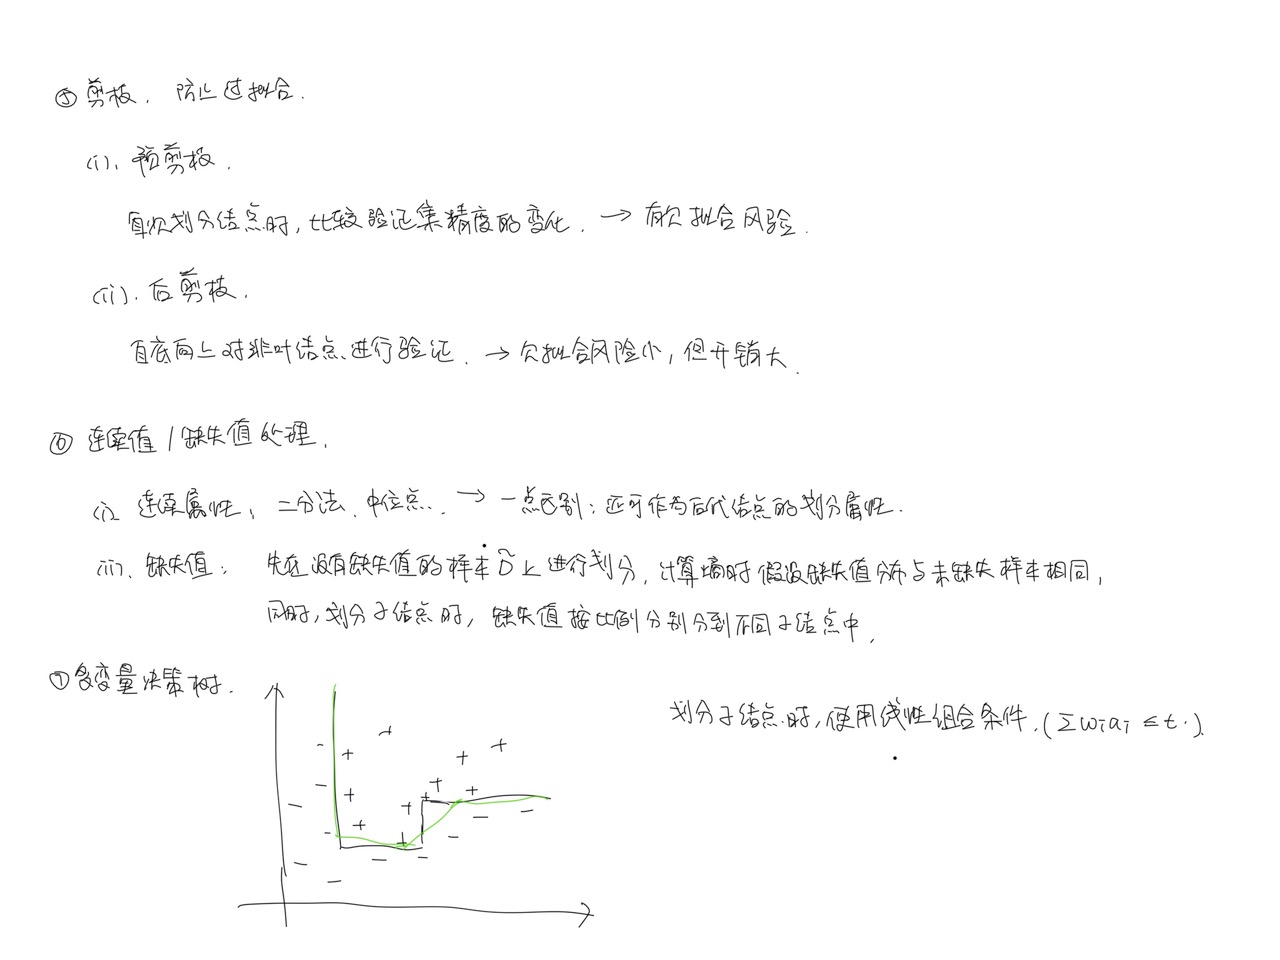 ⑤ 剪枝. 防止过拟合.
(i). 预剪枝.
每次划分结点时, 比较验证集精度的变化. → 有欠拟合风险.
(ii). 后剪枝.
自底向上对非叶结点进行验证. → 欠拟合风险小, 但开销大.
⑥ 连续值/缺失值处理.
(i). 连续属性: 二分法、中位点. → 一点区别: 还可作为后代结点的划分属性.
(ii). 缺失值: 先在没有缺失值的样本D̃上进行划分, 计算熵时假设缺失值分布与未缺失样本相同,
同时, 划分子结点时, 缺失值按比例分别分到不同子结点中.
⑦ 多变量决策树.
划分子结点时, 使用线性组合条件. (Σwᵢaᵢ ≤ t.).